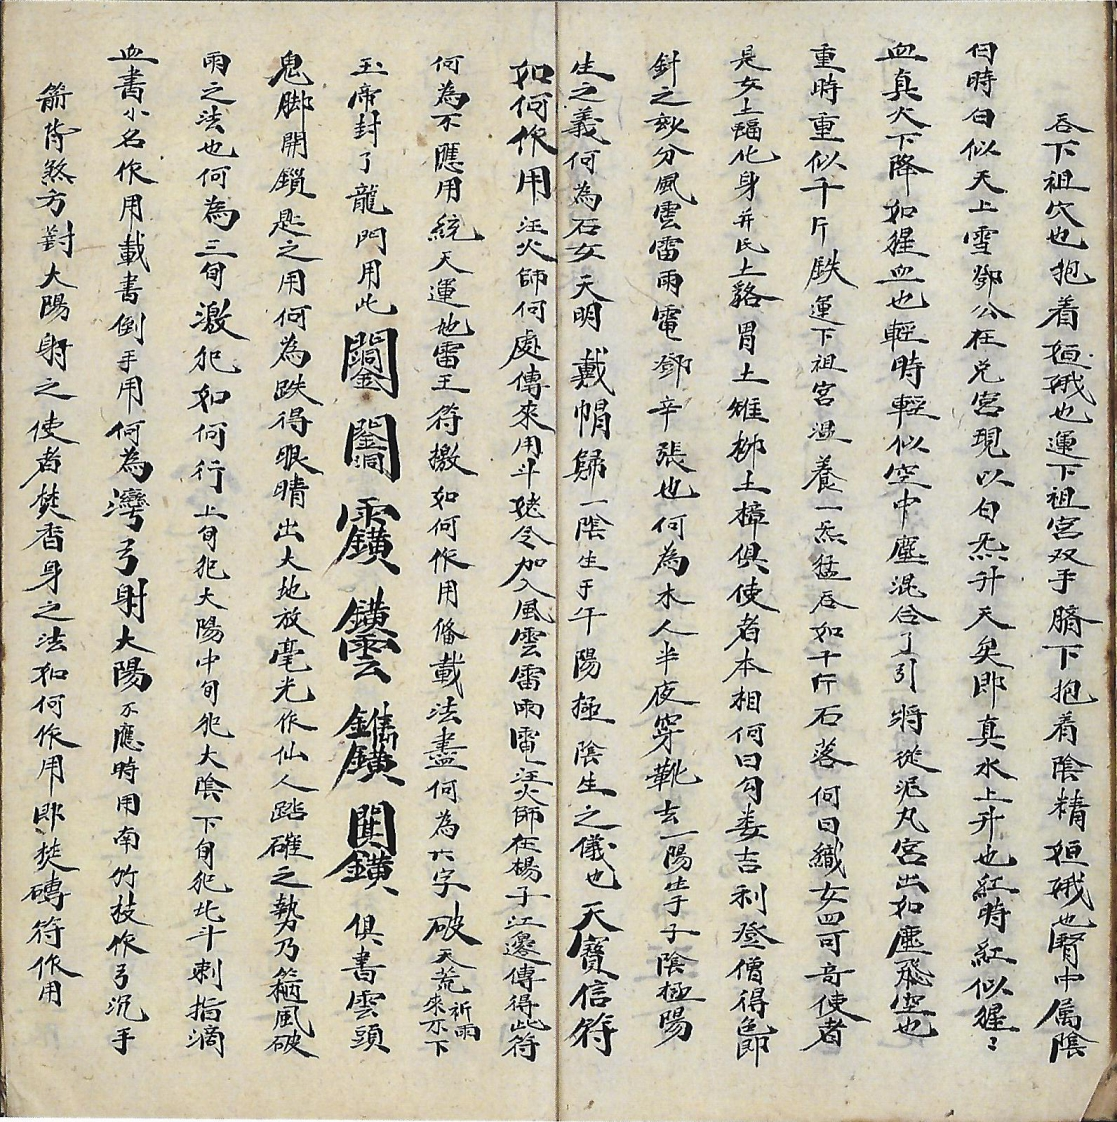 吞下祖穴也抱着姮娥也運下祖宮双手臍下抱着陰精姮娥也腎中属陰
白時白似天上雪鄧公在兌宮現以白炁升天矣即真水上升也紅時紅似猩〻
血真火下降如猩血也輕時輕似空中塵混合了引將從泥丸宮出如塵飛空也
重時重似千斤鉄運下祖宮温養一炁猛吞如千斤石落何曰織女四可哥使者
是女土蝠化身并氐土貉胃土雉柳土樟俱使者本相何曰勾婁吉利登僧得色即
針之敥分風雲雷雨電鄧辛張也何為木人半夜穿靴去一陽生于子陰極陽
生之義何為石女天明戴帽歸一陰生于午陽極陰生之儀也天寶信符
如何作用汪火師何處傳來用斗姥令加入風雲雷雨電汪火師在楊子江邊傳得此符
何為不應用統天運地雷王符檄如何作用俻載法盡何為六字破天荒祈雨來不下
玉帝封了龍門用此 俱書雲頭
鬼脚開鎖匙之用何為跌得眼晴出大地放毫光作仙人踏碓之勢乃籂風破
雨之法也何為三旬激犯如何行上旬犯大陽中旬犯大陰下旬犯北斗刺指滴
血書小名作用載書倒手用何為灣弓射大陽不應時用南竹枝作弓沉手
箭背煞方對大陽射之使者焚香身之法如何作用即焚磚符作用